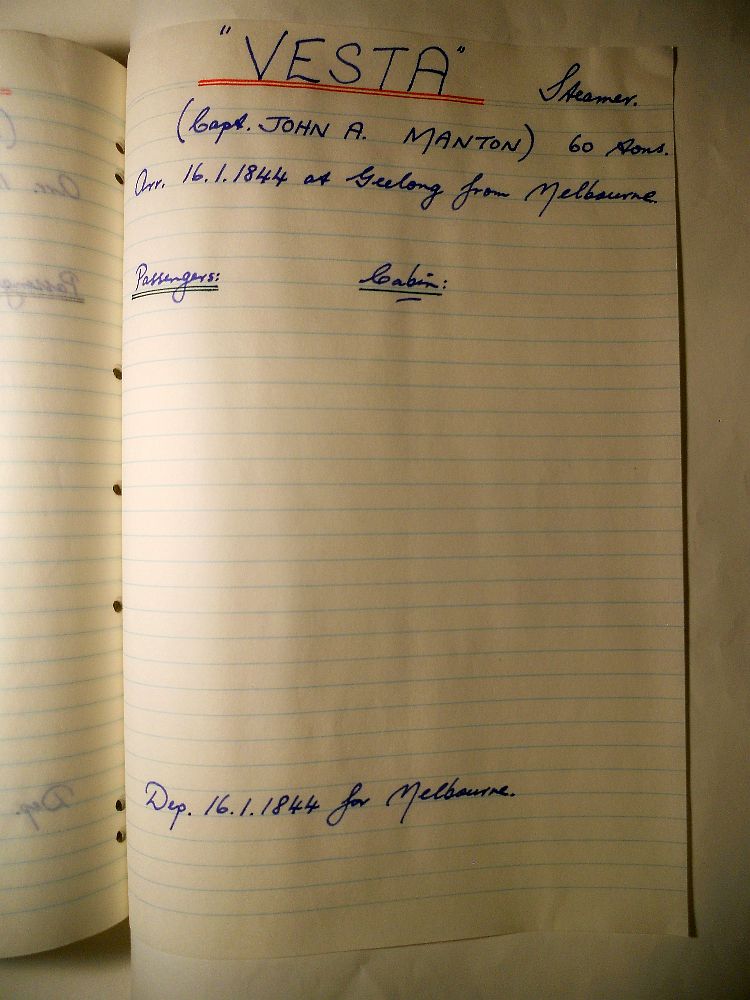 "VESTA" Steamer.
(Capt. JOHN A. MANTON) 60 tons.
Arr. 16.1.1844 at Geelong from Melbourne.
Passengers: Cabin:
Dep. 16.1.1844 for Melbourne.